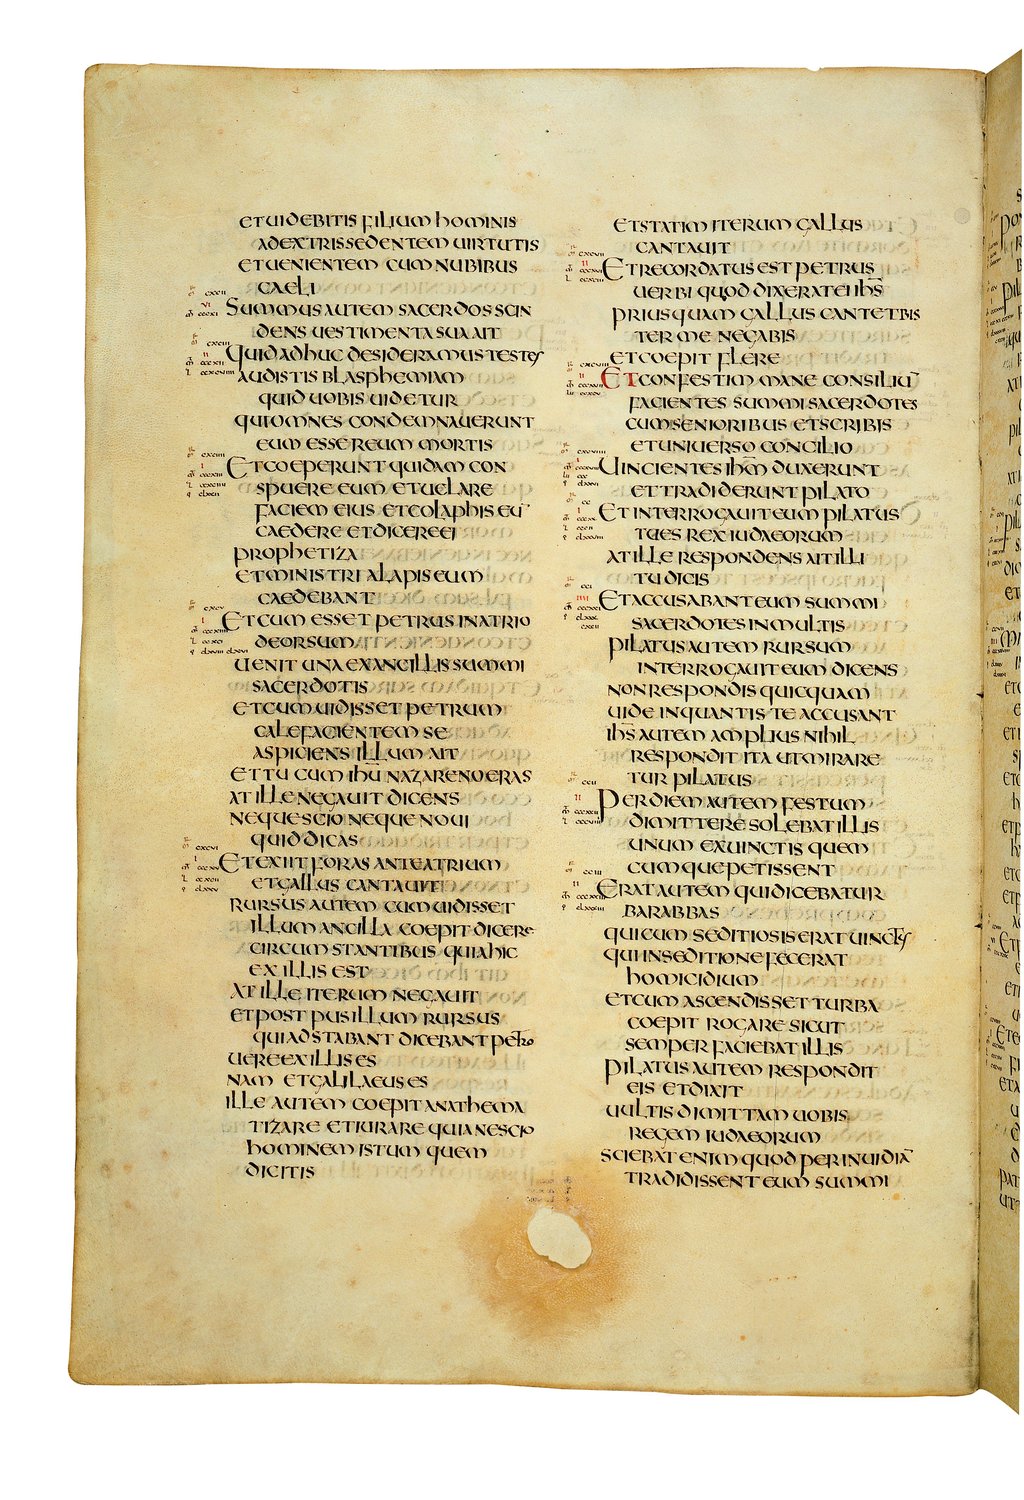 et uidebitis filium hominis
ad extris sedentem uirtutis
et uenientem cum nubibus
caeli
Summus autem sacerdos scin
dens uestimenta sua ait
Quid adhuc desideramus testes
audistis blasphemiam
quid uobis uidetur
qui omnes condemnauerunt
eum esse reum mortis
Et coeperunt quidam con
spuere eum et uelare
faciem eius et colaphis eū
caedere et dicere ei
prophetiza
et ministri alapis eum
caedebant
Et cum esset petrus in atrio
deorsum
uenit una ex ancillis summi
sacerdotis
et cum uidisset petrum
calefacientem se
aspiciens illum ait
et tu cum ihū nazareno eras
at ille negauit dicens
neque scio neque noui
quid dicas
Et exiit foras ante atrium
et gallus cantauit
rursus autem cum uidisset
illum ancilla coepit dicere
circumstantibus quia hic
ex illis est
at ille iterum negauit
et post pusillum rursus
qui adstabant dicebant petro
uere ex illis es
nam et galilaeus es
ille autem coepit anathema
tizare et iurare quia nescio
hominem istum quem
dicitis
et statim iterum gallus
cantauit
Et recordatus est petrus
uerbi quod dixerat ei ihs̄
prius quam gallus cantet bis
ter me negabis
et coepit flere
Et confestim mane consiliū
facientes summi sacerdotes
cum senioribus et scribis
et uniuerso concilio
Uincientes ihm̄ duxerunt
et tradiderunt pilato
Et interrogauit eum pilatus
tu es rex iudaeorum
at ille respondens ait illi
tu dicis
Et accusabant eum summi
sacerdotes in multis
pilatus autem rursum
interrogauit eum dicens
non respondis quicquam
uide in quantis te accusant
ihs̄ autem amplius nihil
respondit ita ut mirare
tur pilatus
Per diem autem festum
dimittere solebat illis
unum ex uinctis quem
cumque petissent
Erat autem qui dicebatur
barabbas
qui cum seditiosis erat uinctus
qui in seditione fecerat
homicidium
et cum ascendisset turba
coepit rogare sicut
semper faciebat illis
pilatus autem respondit
eis et dixit
uultis dimittam uobis
regem iudaeorum
sciebat enim quod per inuidiā
tradidissent eum summi